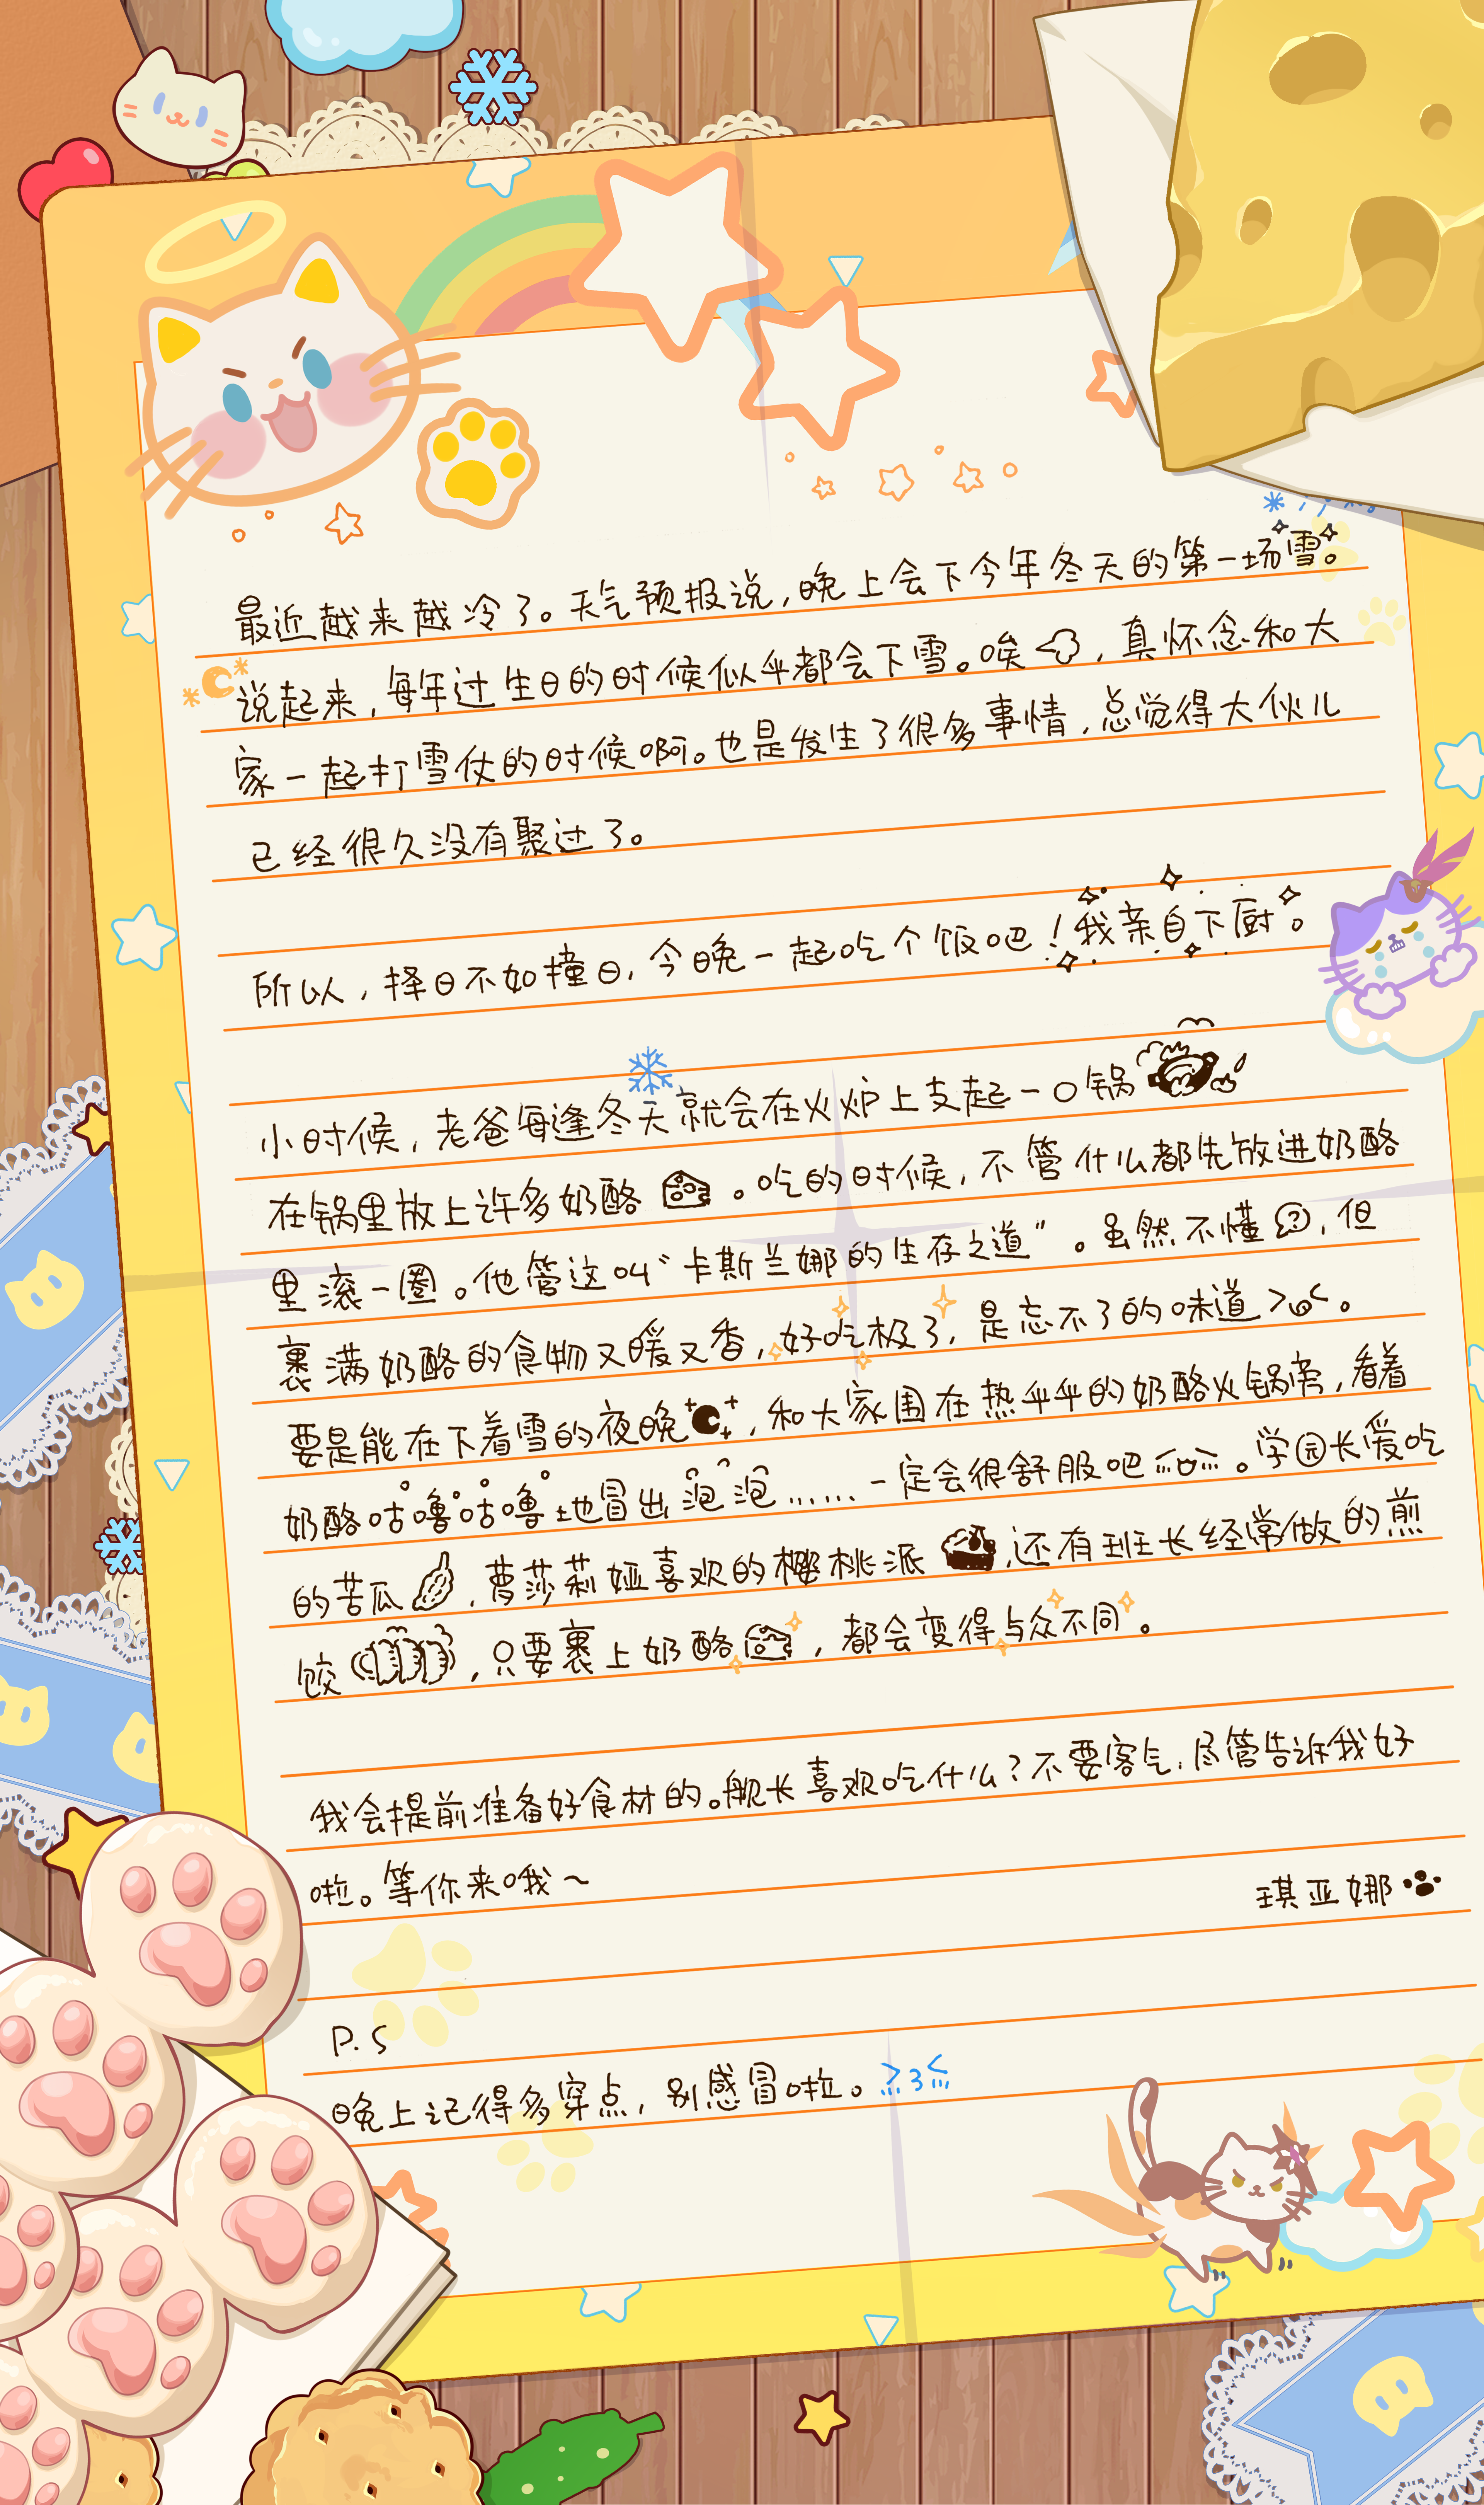 最近越来越冷了。天气预报说,晚上会下今年冬天的第一场雪。
说起来,每年过生日的时候似乎都会下雪。唉,真怀念和大
家一起打雪仗的时候啊。也是发生了很多事情,总觉得大伙儿
已经很久没有聚过了。
所以,择日不如撞日,今晚一起吃个饭吧!我亲自下厨。
小时候,老爸每逢冬天就会在火炉上支起一口锅
在锅里放上许多奶酪。吃的时候,不管什么都先放进奶酪
里滚一圈。他管这叫“卡斯兰娜的生存之道”。虽然不懂?,但
裹满奶酪的食物又暖又香,好吃极了,是忘不了的味道。
要是能在下着雪的夜晚,和大家围在热乎乎的奶酪火锅旁,看着
奶酪咕噜咕噜地冒出泡泡……一定会很舒服吧。学园长爱吃
的苦瓜,萝莎莉娅喜欢的樱桃派,还有班长经常做的煎
饺,只要裹上奶酪,都会变得与众不同。
我会提前准备好食材的。舰长喜欢吃什么?不要客气,尽管告诉我好
啦。等你来哦~
琪亚娜
P.S
晚上记得多穿点,别感冒啦。≥3≤